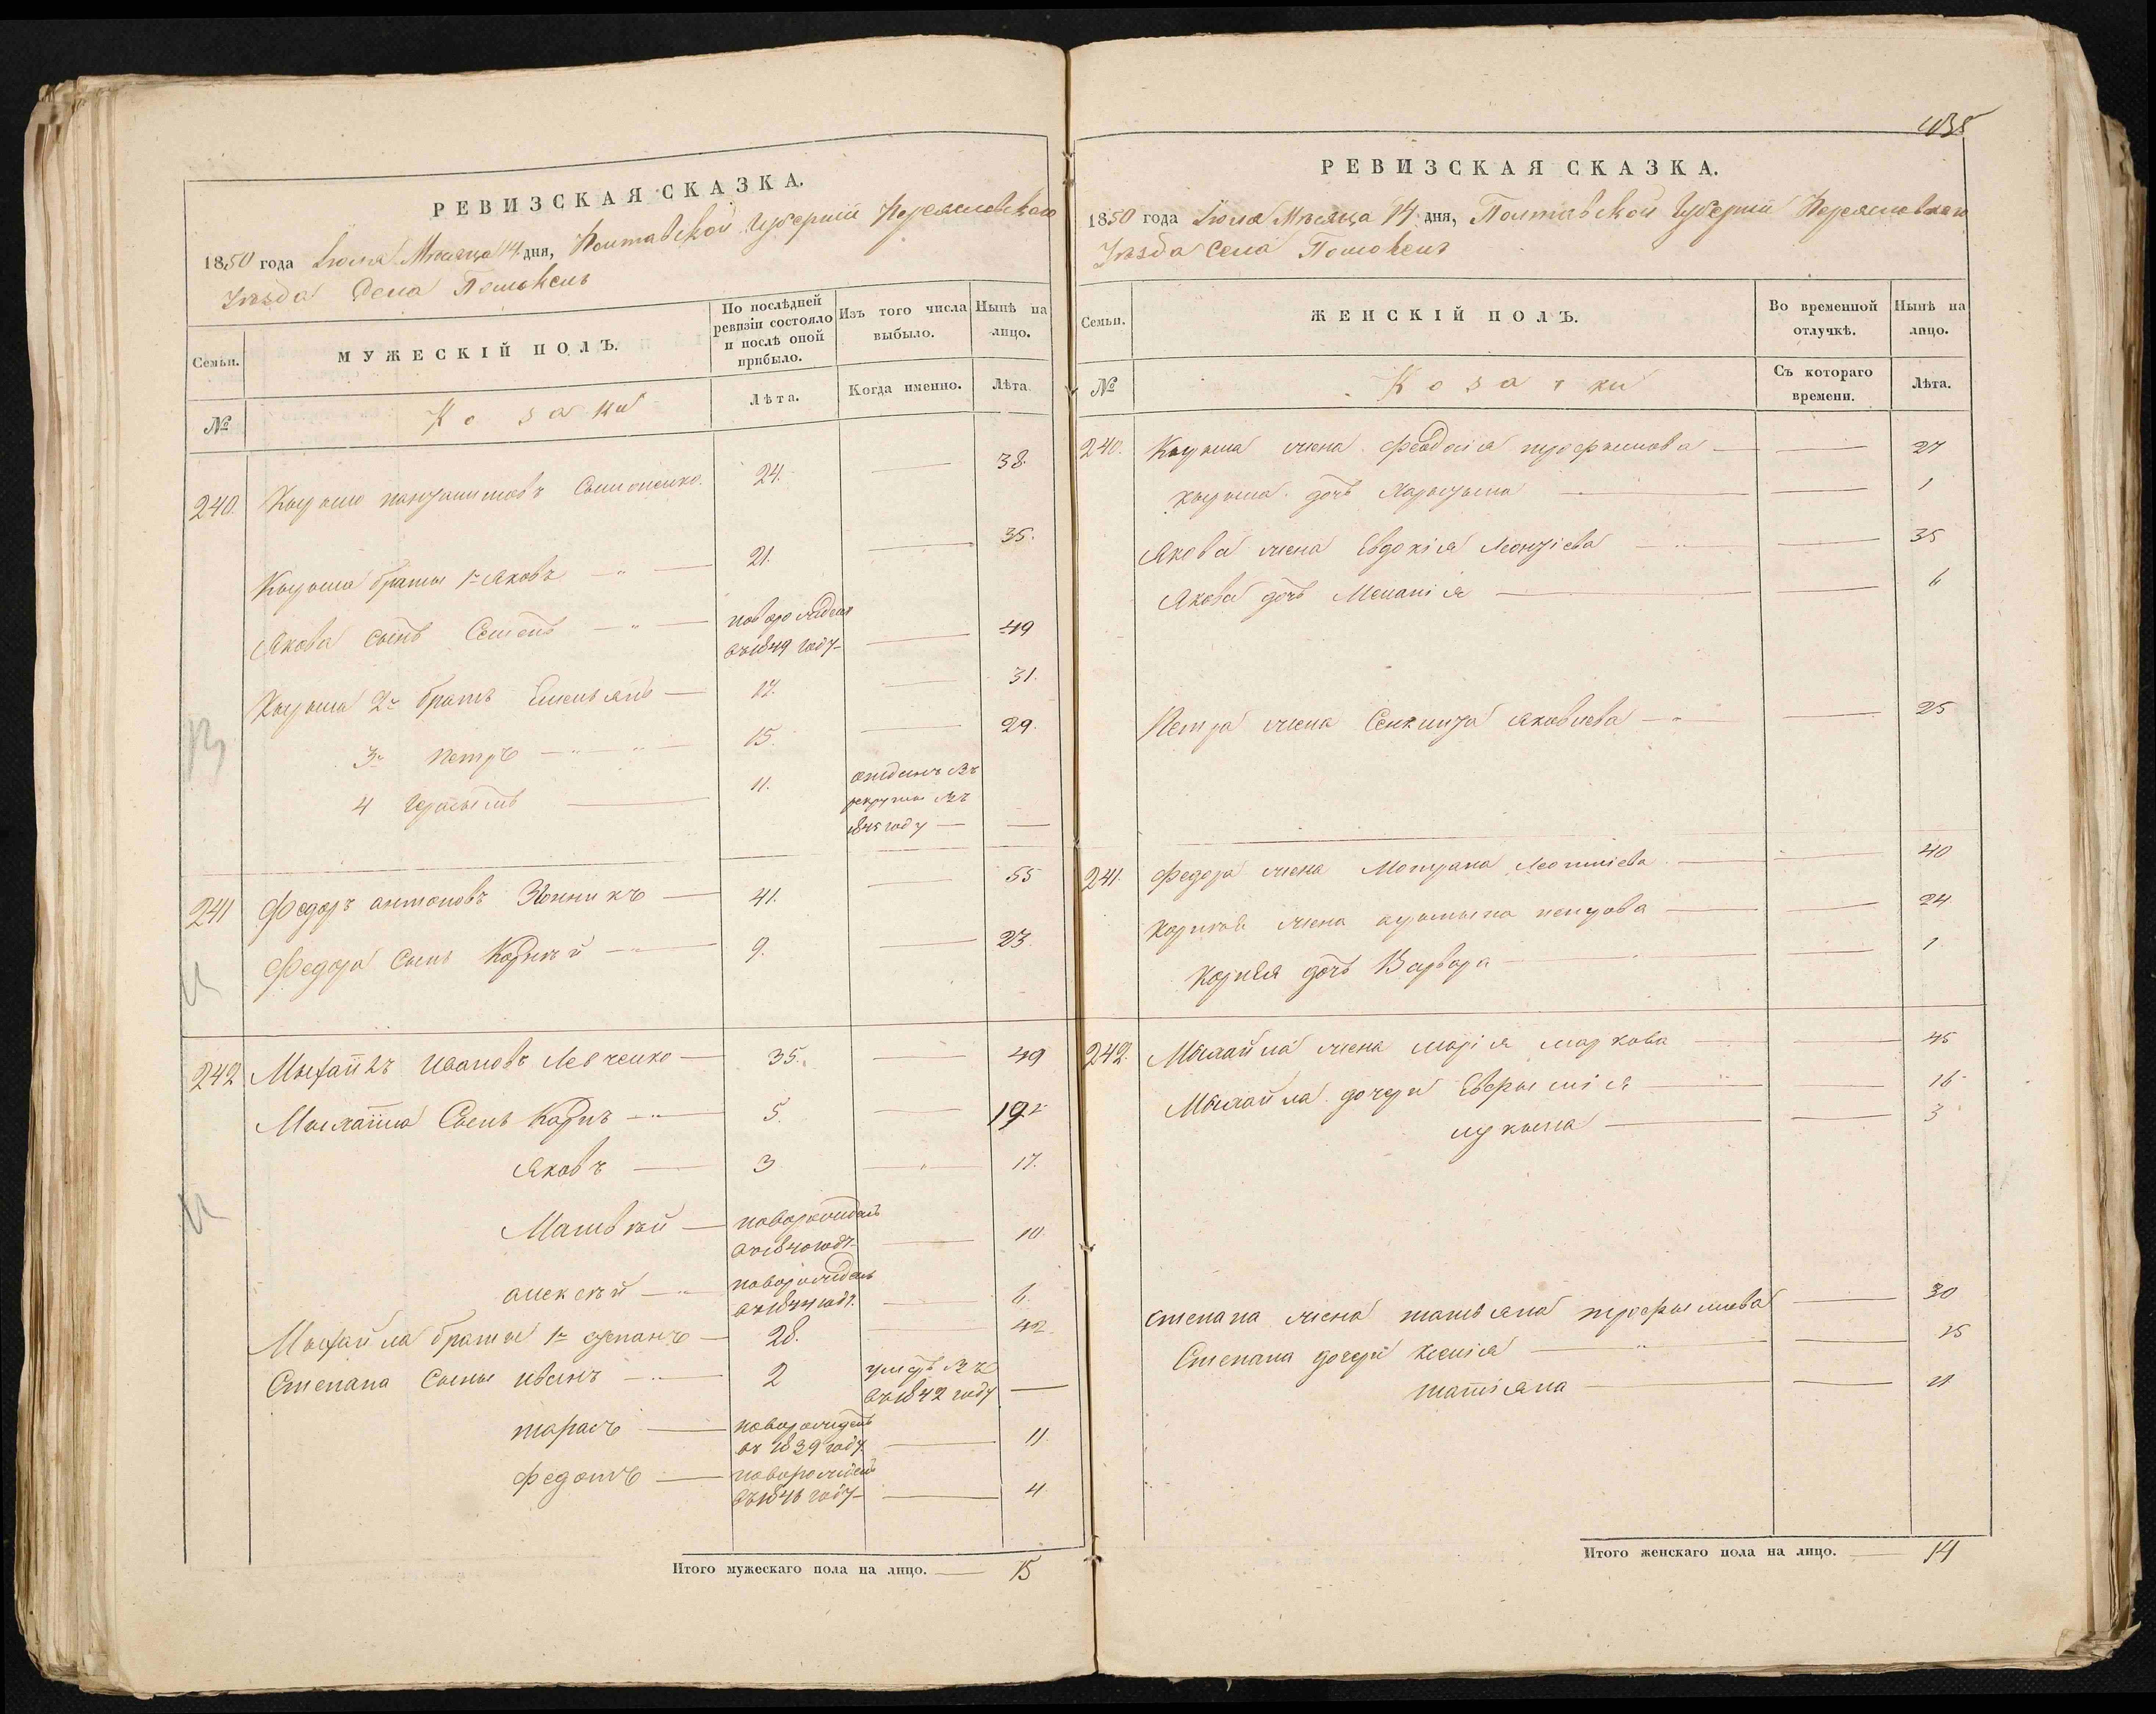 РЕВИЗСКАЯ СКАЗКА.
1850 года Июля Мѣсяца 14 дня, Полтавской Губерніи Переяславскаго
Уѣзда Села Помоклъ
Семьи.
МУЖЕСКІЙ ПОЛЪ.
По послѣдней ревизіи состояло и послѣ оной прибыло.
Изъ того числа выбыло.
Нынѣ на лицо.
№
Козаки
Лѣта.
Когда именно.
Лѣта.
240. Симоненко. 24. — 38.
братья 1й Яковъ — 21. — 35.
Якова сынъ Семенъ — новорожденъ въ 1849 году — 49
2й братъ Емельянъ — 17. — 31.
3й Петръ — 15. — 29.
4 — 11. отданъ въ рекруты въ 1845 году — —
241 Федоръ Антоновъ — 41. — 55
Федора сынъ Корнѣй — 9. — 23.
242 Михайлъ Ивановъ Левченко — 35. — 49
Михайла сынъ Карпъ — 5. — 19.
Яковъ — 3 — 17.
Матвѣй — новорожденъ въ 1840 году — 10.
Алексѣй — новорожденъ въ 1844 году. — 6.
Михайла братья 1й Степанъ — 28. — 42.
Степана сыны Иванъ — 2 въ 1842 году —
Тарасъ — новорожденъ въ 1839 году. — 11.
Федотъ — новорожденъ въ 1846 году — 4
Итого мужескаго пола на лицо. — 15
РЕВИЗСКАЯ СКАЗКА.
1850 года Июля Мѣсяца 14 дня, Полтавской Губерніи Переяславскаго
Уѣзда Села Помоклъ
Семьи.
ЖЕНСКІЙ ПОЛЪ.
Во временной отлучкѣ.
Нынѣ на лицо.
№
Козачки
Съ котораго времени.
Лѣта.
240. жена Феодосія Трофимова — — 27
дочь — — 1
Якова жена Евдокія Леонтіева — — 35
Якова дочь Меланія — — 6
Петра жена Яковлева — — 25
241. Федора жена Мотрана — — 40
Корнѣя жена Петрова — — 24
Корнѣя дочь Варвара — — 1
242. Михайла жена Марія Маркова — — 45
Михайла дочери — — 16
— — 3
Степана жена Татьяна Трофимова — 30
Степана дочери Ксенія — — 15
Татіяна — —
Итого женскаго пола на лицо. — 14